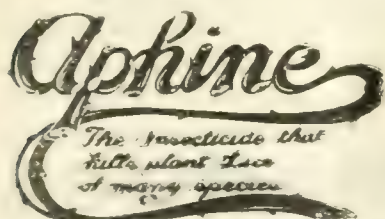 Aphine
The Insecticide that
kills plant Lice
of many species